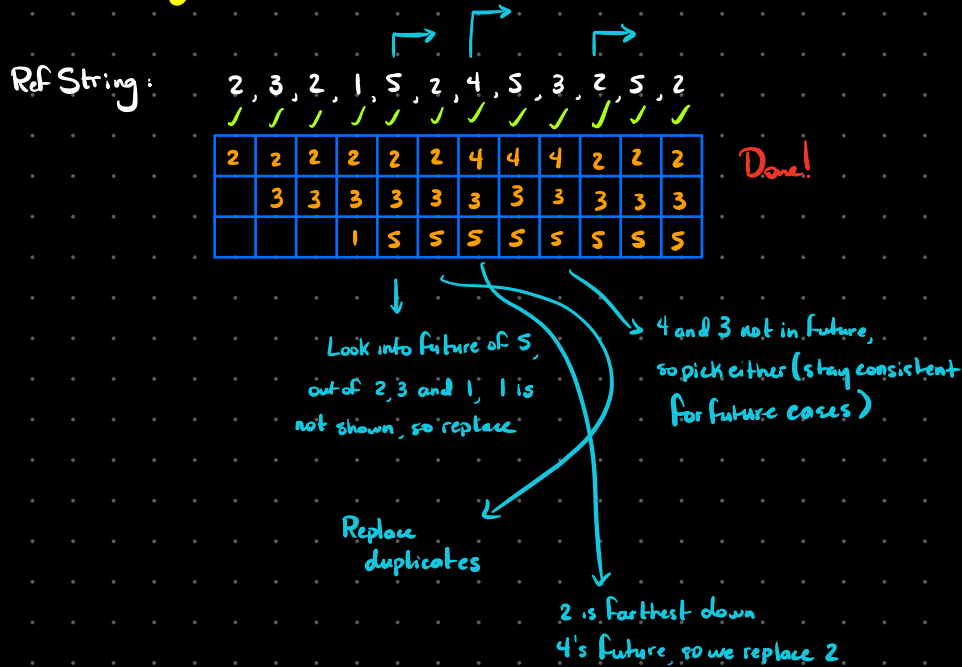 Ref String: 2, 3, 2, 1, 5, 2, 4, 5, 3, 2, 5, 2
2 2 2 2 2 2 4 4 4 2 2 2
3 3 3 3 3 3 3 3 3 3 3
1 5 5 5 5 5 5 5 5
Done!
Look into future of 5,
out of 2, 3 and 1, 1 is
not shown, so replace
4 and 3 not in future,
so pick either (stay consistent
for future cases)
Replace
duplicates
2 is farthest down
4's future, so we replace 2